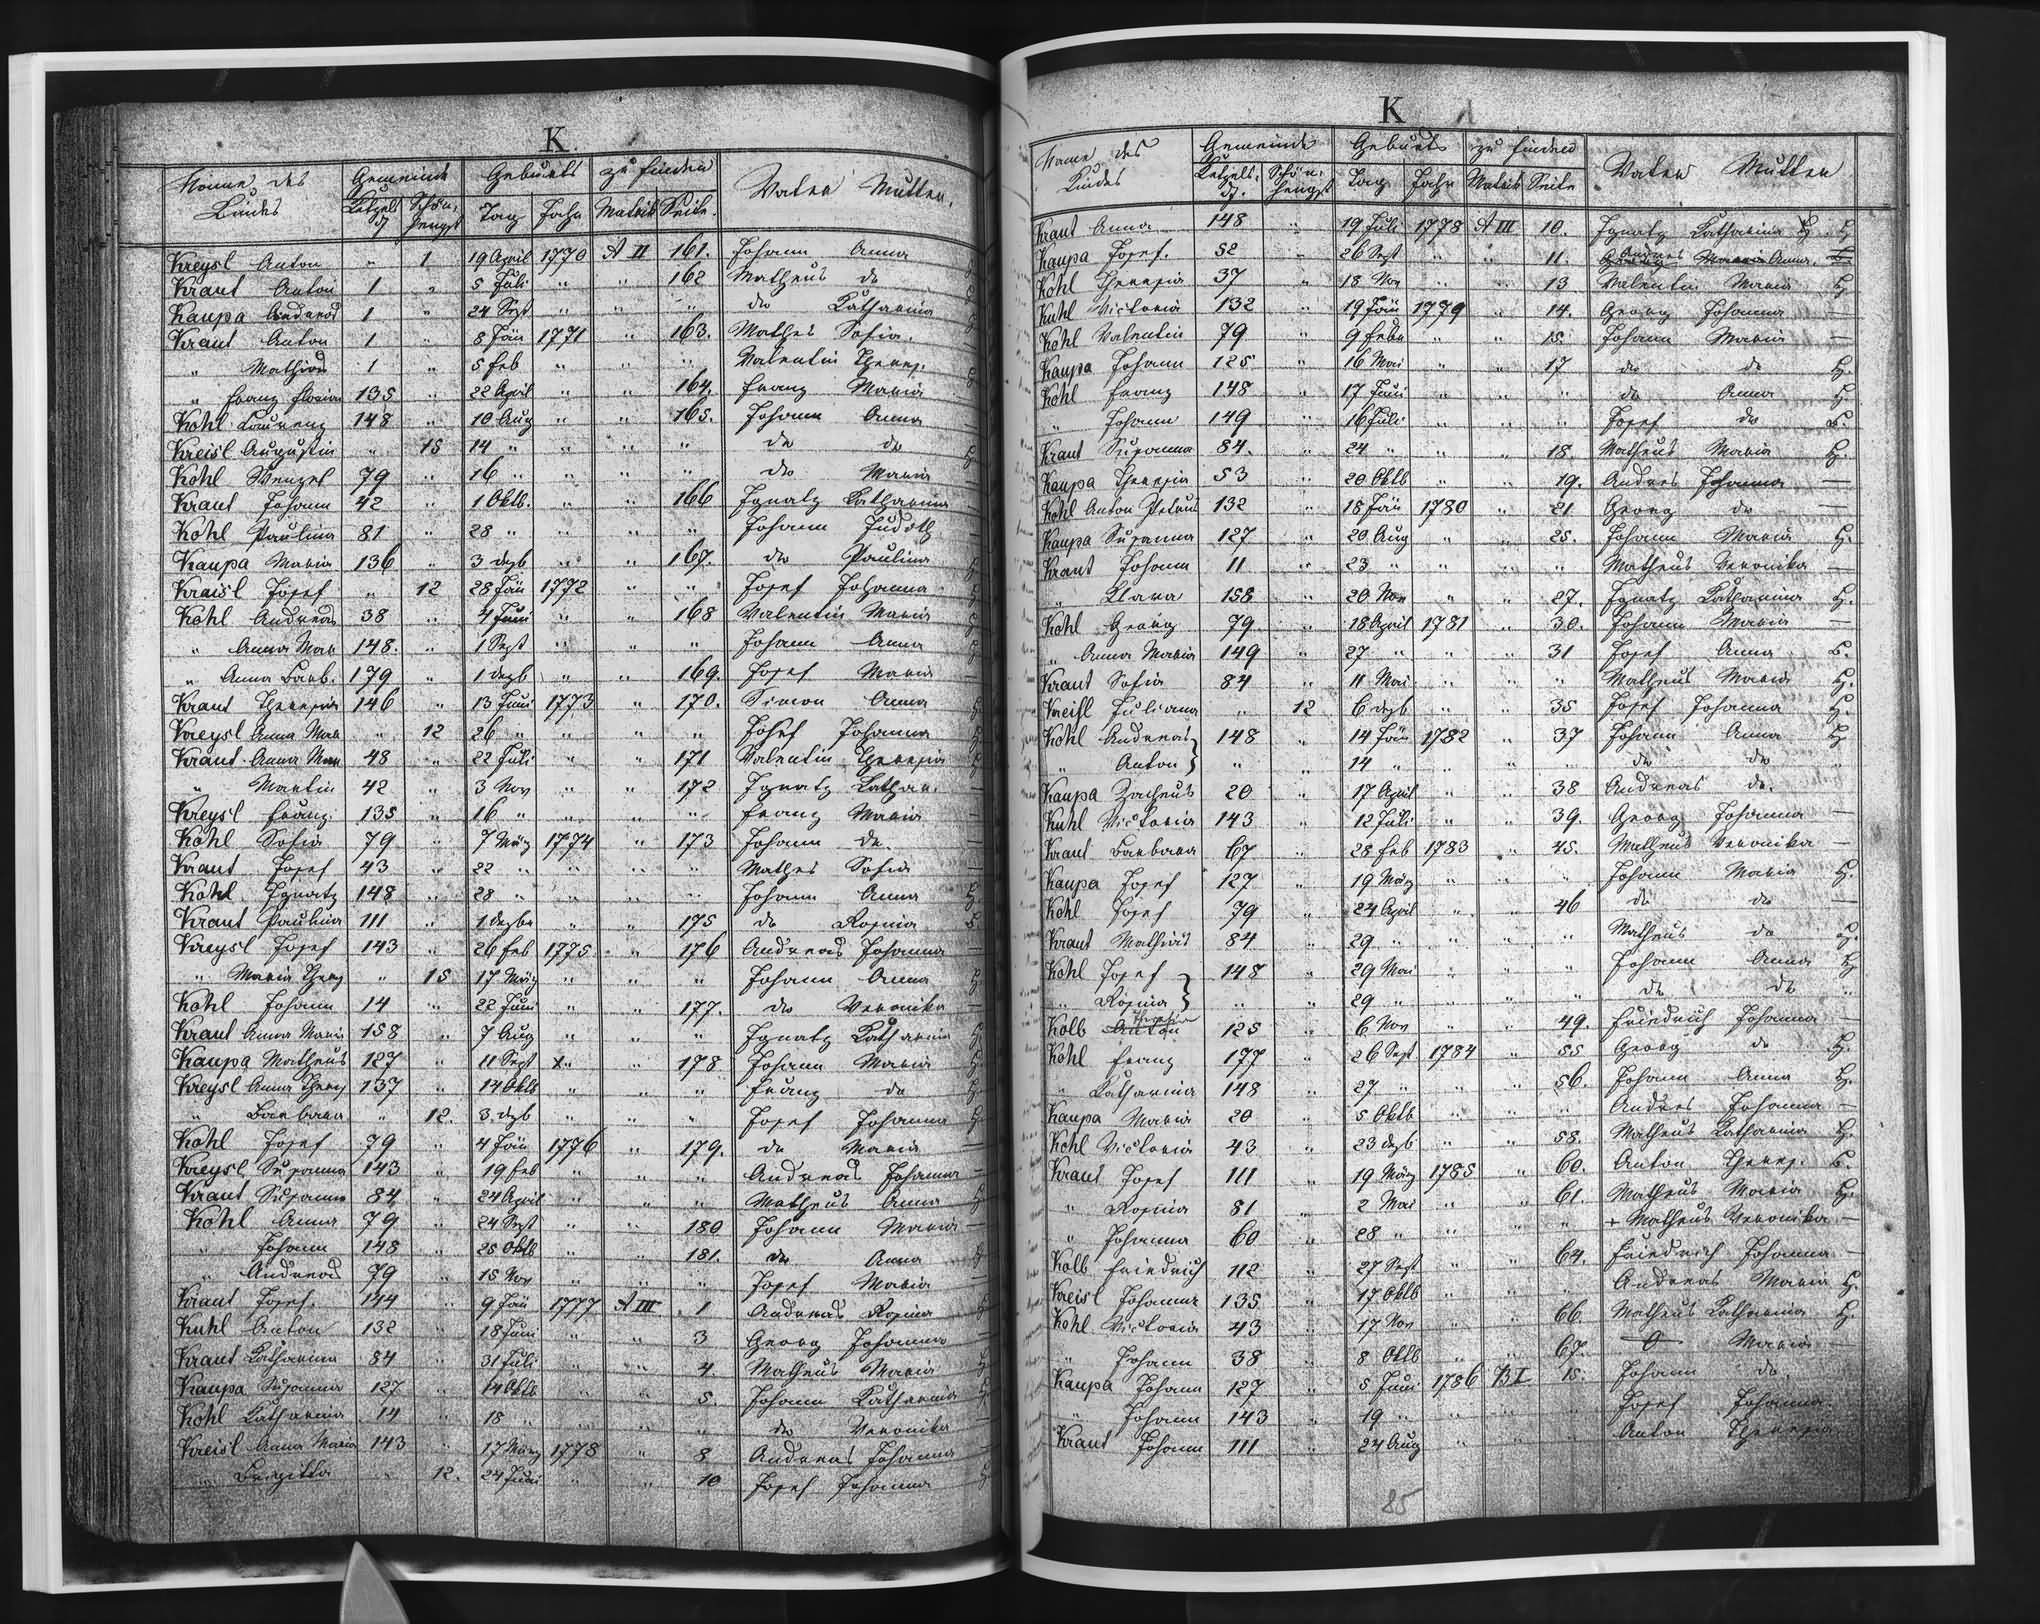 K.
Name des Kindes Gemeinde Geburts zu finden Vater Mutter.
Ketzelsd. Schönhengst Tag Jahr Matrik Seite.
Kreysl Anton " 1 19 April 1770 A II 161. Johann Anna
Kraut Anton 1 " 5 Juli " " 162 Matheus do
Kaupa Andreas 1 " 24 Sept " " " do Katharina
Kraut Anton 1 " 8 Jän 1771 " 163. Mathes Sofia.
" Mathias 1 " 5 feb " " " Valentin Theres.
" Franz Florian 135 " 22 April " " 164. Franz Maria
Kohl Laurenz 148 " 10 Aug " " 165. Johann Anna
Kreisl Augustin " 15 14 " " " " do do
Kohl Wenzel 79 " 16 " " " " do Maria
Kraut Johann 42 " 1 Oktb. " " 166 Ignatz Katharina
Kohl Paulina 81 " 28 " " " " Johann Judith
Kaupa Maria 136 " 3 dezb " " 167. do Paulina
Kraisl Josef " 12 28 Jän 1772 " " Josef Johanna
Kohl Andreas 38 " 4 Juni " " 168 Valentin Maria
" Anna Mar 148. " 1 Sept " " " Johann Anna
" Anna Barb. 179 " 1 dezb " " 169. Josef Maria
Kraut Theresia 146 " 13 Juni 1773 " 170. Simon Anna
Kreysl Anna Mar " 12 26 " " " " Josef Johanna
Kraut Anna Mar 48 " 22 Juli " " 171 Valentin Theresia
" Martin 42 " 3 Nov " " 172 Ignatz Kathar.
Kreysl Franz 135 " 16 " " " " Franz Maria
Kohl Sofia 79 " 7 März 1774 " 173 Johann do.
Kraut Josef 43 " 22 " " " " Mathes Sofia
Kohl Ignatz 148 " 28 " " " " Johann Anna
Kraut Paulina 111 " 1 dezbr " " 175 do Rosina
Kreysl Josef 143 " 26 feb 1775 " 176 Andreas Johanna
" Maria Theres " 15 17 März " " " Johann Anna
Kohl Johann 14 " 22 Juni " " 177. do Veronika
Kraut Anna Maria 158 " 7 Aug " " " Ignatz Katharina
Kaupa Matheus 127 " 11 Sept " " 178 Johann Maria
Kreysl Anna Theres 137 " 14 Oktb " " " Franz do
" Barbara " 12. 3. dezb " " " Josef Johanna
Kohl Josef 79 " 4 Jän 1776 " 179. do Maria
Kreysl Susanna 143 " 19 feb " " " Andreas Johanna
Kraut Susanna 84 " 24 April " " " Matheus Anna
Kohl Anna 79 " 24 Sept " " 180 Johann Maria
" Johann 148 " 25 Oktb " " 181. do Anna
" Andreas 79 " 15 Nov " " " Josef Maria
Kraut Josef. 144 " 9 Jän 1777 A III 1 Andreas Rosina
Kuhl Anton 132 " 18 Juni " " 3 Georg Johanna
Kraut Katharina 84 " 31 Juli " " 4. Matheus Maria
Kaupa Susanna 127 " 14 Oktb " " 5. Johann Katharina
Kohl Katharina 14 " 18 " " " " do Veronika
Kreisl Anna Maria 143 " 17 März 1778 " 8 Andreas Johanna
" Brigitta " 12. 24 Juni " " 10 Josef Johanna
K
Name des Kindes Gemeinde Geburts zu finden Vater Mutter
Ketzelsd. Schönhengst Tag Jahr Matrik Seite
Kraut Anna 148 " 19 Juli 1778 A III 10. Ignatz Katharina H.
Kaupa Josef. 52 " 26 Sept " " 11. Andreas Anna.
Kohl Theresia 37 " 18 Nov " " 13 Valentin Maria H
Kuhl Victoria 132 " 19 Jän 1779 " 14. Georg Johanna —
Kohl Valentin 79 " 9 Febr " " 15. Johann Maria —
Kaupa Johann 125 " 16 Mai " " 17 do do H.
Kohl Franz 148 " 17 Juni " " " do Anna H.
" Johann 149 " 16 Juli " " " Josef do B.
Kraut Susanna 84. " 24 " " " 18. Matheus Maria H.
Kaupa Theresia 53 " 20 Oktb " " 19. Andres Johanna —
Kohl Anton Petrus 132 " 18 Jän 1780 " 21 Georg do —
Kaupa Susanna 127 " 20 Aug " " 25. Johann Maria H.
Kraut Johann 11 " 23 " " " " Matheus Veronika —
" Klara 158 " 20 Nov " " 27. Ignatz Katharina H.
Kohl Georg 79 " 18 April 1781 " 30. Johann Maria —
" Anna Maria 149 " 27 " " " 31 Josef Anna B.
Kraut Sofia 84 " 11 Mai " " " Matheus Maria H.
Kreisl Juliana " 12 6 dezb " " 35 Josef Johanna H.
Kohl Andreas } 148 " 14 Jän 1782 " 37 Johann Anna H
" Anton } " " 14 " " " " do do "
Kaupa Zacheus 20 " 17 April " " 38 Andreas do.
Kuhl Victoria 143 " 12 Juli " " 39. Georg Johanna —
Kraut Barbara 67 " 28 feb 1783 " 45. Matheus Veronika —
Kaupa Josef 127 " 19 März " " " Johann Maria H.
Kohl Josef 79 " 24 April " " 46 do do —
Kraut Mathias 84 " 29 " " " " Matheus do H.
Kohl Josef } 148 " 29 Mai " " " Johann Anna H
" Rosina } " " 29 " " " " do do "
Kolb Anton Theresia 125 " 6 Nov " " 49. Friedrich Johanna —
Kohl Franz 177 " 26 Sept 1784 " 55 Georg do H.
" Katharina 148 " 27 " " " 56. Johann Anna H.
Kaupa Maria 20 " 5 Oktb " " " Andres Johanna —
Kohl Victoria 43 " 23 dezb " " 58. Matheus Katharina H.
Kraut Josef 111 " 19 März 1785 " 60. Anton Theres. B.
" Rosina 81 " 2 Mai " " 61. Matheus Maria H.
" Johanna 60 " 28 " " " " + Matheus Veronika —
Kolb Friedrich 112 " 27 Sept " " 64. Friedrich Johanna —
Kreisl Johanna 135 " 17 Oktb " " " Andreas Maria H.
Kohl Victoria 43 " 17 Nov " " 66. Matheus Katharina H.
" Johann 38 " 8 Oktb " " 67. 0 Maria
Kaupa Johann 127 " 5 Juni 1786 B I 15. Johann do.
" Johann 143 " 19 " " " " Josef Johanna
Kraut Johann 111 " 24 Aug " " " Anton Theresia
85